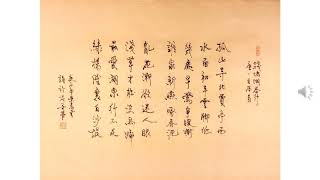 錢塘湖春行
唐·白居易
孤山寺北賈亭西
水面初平雲腳低
幾處早鶯爭暖樹
誰家新燕啄春泥
亂花漸欲迷人眼
淺草才能沒馬蹄
最愛湖東行不足
綠楊陰裏白沙堤